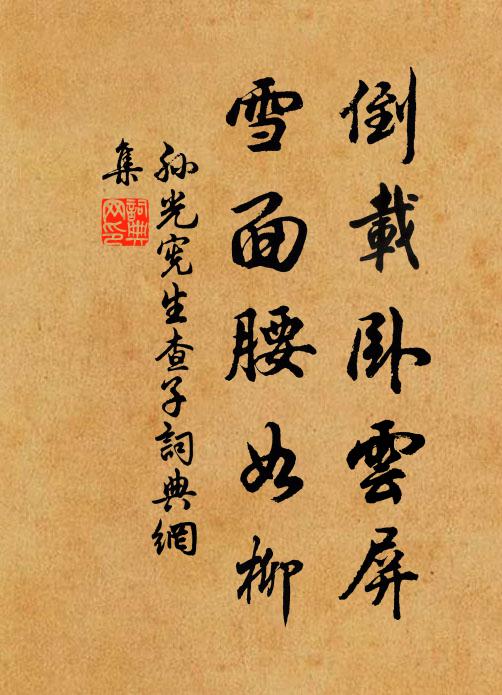 倒載臥雲屏
雪面腰如柳
孫光憲生查子詞典網
集
詞典網印